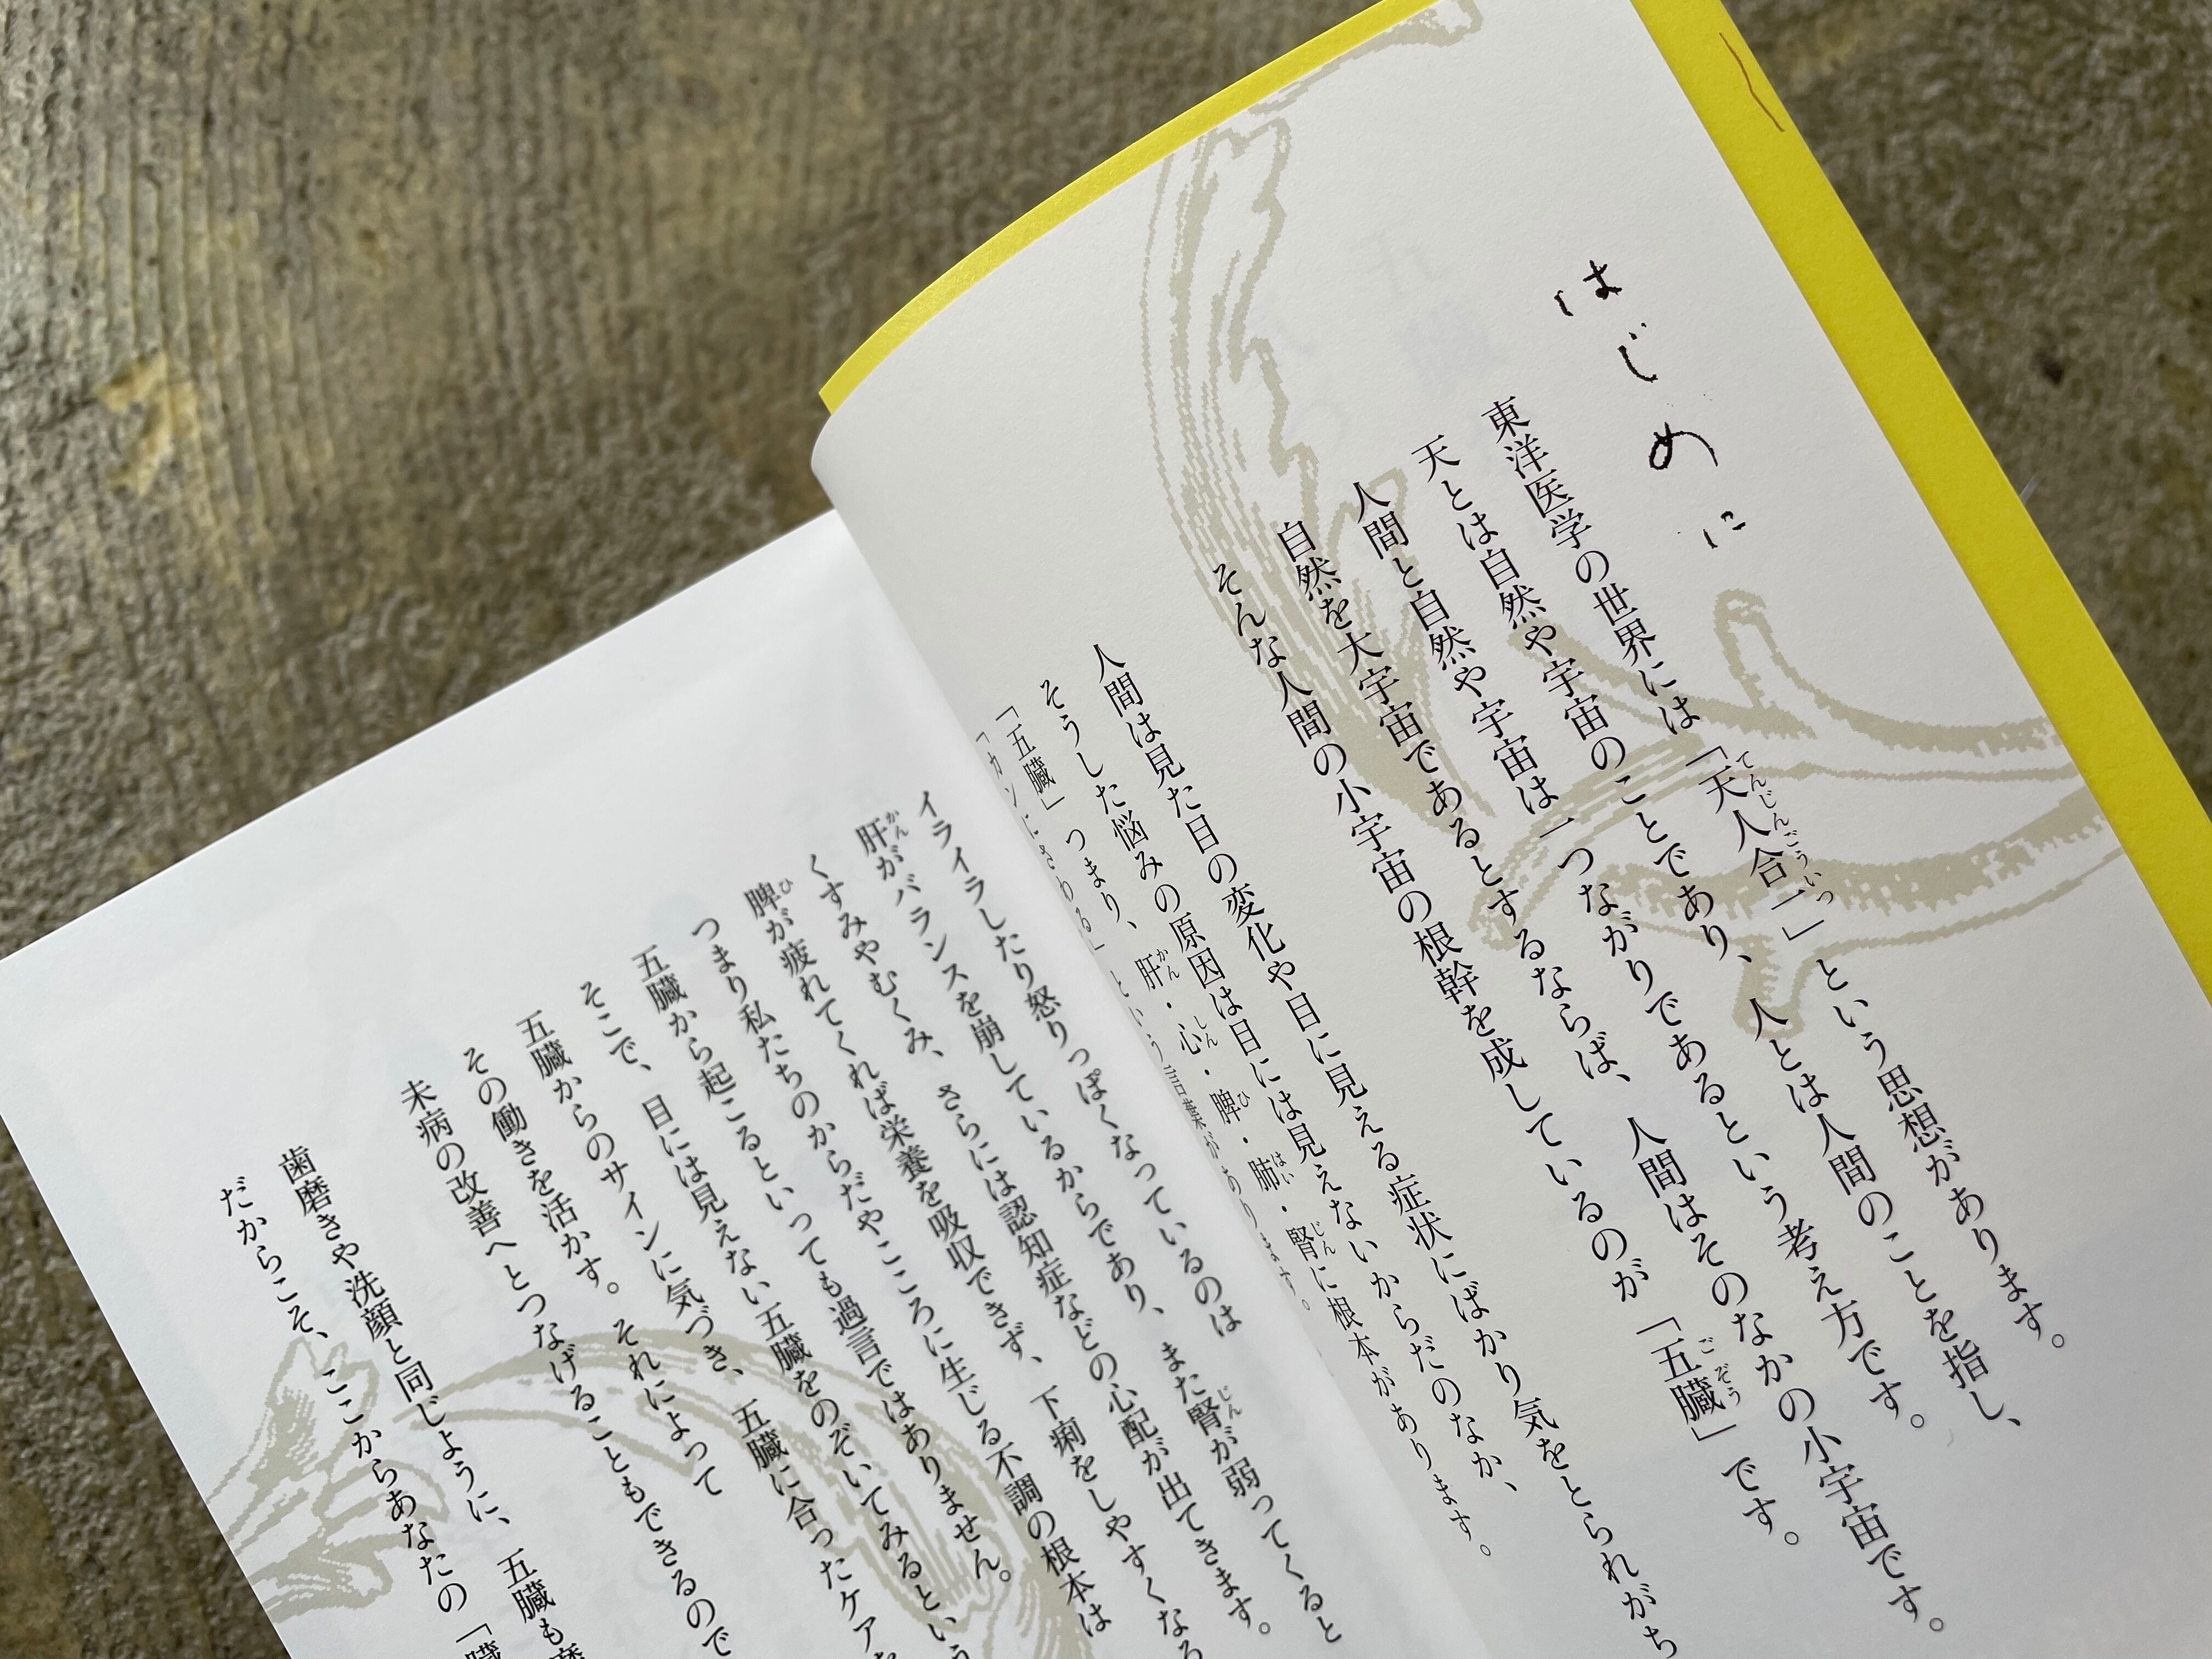 はじめに
東洋医学の世界には「天人合一」という思想があります。
天とは自然や宇宙のことであり、人とは人間のことを指し、
人間と自然や宇宙は一つながりであるという考え方です。
自然を大宇宙であるとするならば、人間はそのなかの小宇宙です。
そんな人間の小宇宙の根幹を成しているのが「五臓」です。
人間は見た目の変化や目に見える症状にばかり気をとられがち
そうした悩みの原因は目には見えないからだのなか、
「五臓」つまり、肝・心・脾・肺・腎に根本があります。
「カンにさわる」という言葉があります。
イライラしたり怒りっぽくなっているのは
肝がバランスを崩しているからであり、また腎が弱ってくると
くすみやむくみ、さらには認知症などの心配が出てきます。
脾が疲れてくれば栄養を吸収できず、下痢をしやすくなる
つまり私たちのからだやこころに生じる不調の根本は
五臓から起こるといっても過言ではありません。
そこで、目には見えない五臓をのぞいてみるという
五臓からのサインに気づき、五臓に合ったケア
その働きを活かす。それによって
未病の改善へとつなげることもできるので
歯磨きや洗顔と同じように、五臓も
だからこそ、ここからあなたの「臓